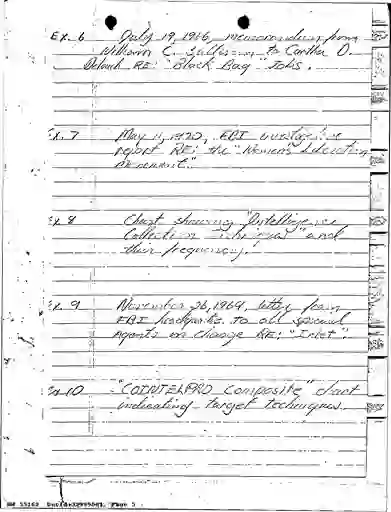 Ex. 6 July 19, 1966, memorandum from
William C. Sullivan to Cartha D.
Deloach RE: "Black Bag" Jobs.
Ex. 7 May 11, 1970, FBI investigative
report RE: the "Women's Liberation
Movement."
Ex. 8 Chart showing "Intelligence
Collection Techniques" and
their frequency.
Ex. 9 November 26, 1969, letter from
FBI headquarters to all special
Agents in Charge RE: "Inlet".
Ex. 10 "COINTELPRO Composite" chart
indicating target techniques.
Page 5